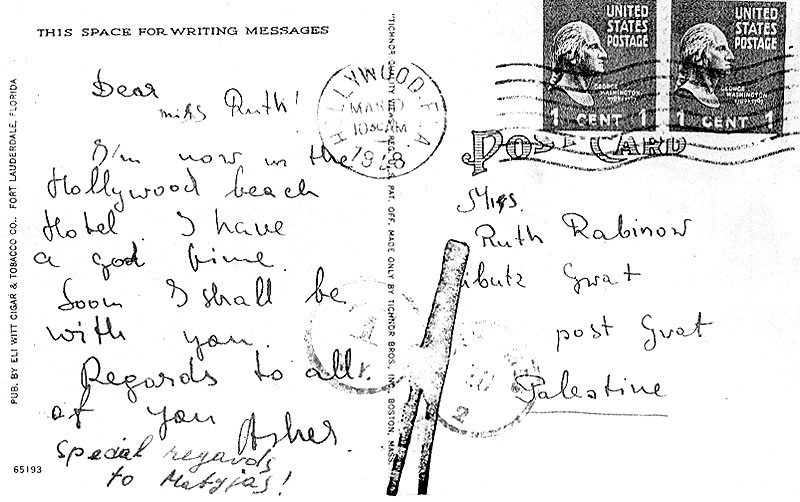 THIS SPACE FOR WRITING MESSAGES
Dear
miss Ruth!
I'm now in the
Hollywood beach
Hotel. I have
a god time.
Soon I shall be
with you.
Regards to all.
of you
Asher.
special regards
to Matyjas!
65193
PUB. BY ELI WITT CIGAR & TOBACCO CO., FORT LAUDERDALE, FLORIDA
"TICHNOR QUALITY VIEWS," REG. U. S. PAT. OFF. MADE ONLY BY TICHNOR BROS., INC. BOSTON, MASS.
HOLLYWOOD, FLA.
MAR 10
1030 AM
1948
UNITED
STATES
POSTAGE
GEORGE
WASHINGTON
1 CENT 1
UNITED
STATES
POSTAGE
GEORGE
WASHINGTON
1 CENT 1
POST CARD
Miss.
Ruth Rabinow
ibutz Gwat
post Gvat
Palestine